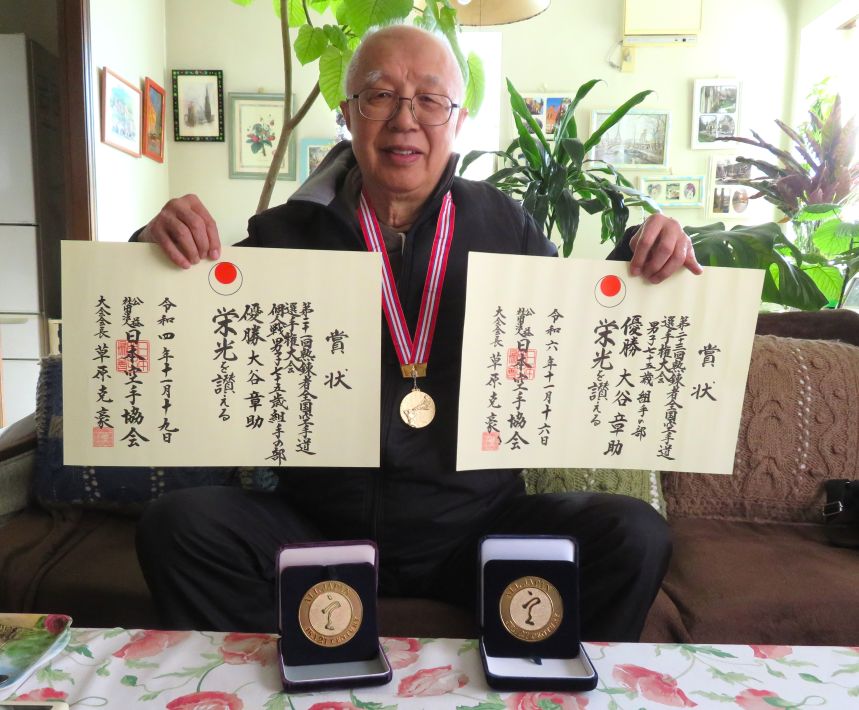 賞状
第二十一回熟錬者全国空手道
選手権大会
個戦男子七十五歳組手の部
優勝 大谷章助
栄光を讃える
令和四年十一月十九日
公益
社団法人
日本空手協会
大会会長 草原克豪
賞状
第二十三回熟錬者全国空手道
選手権大会
男子七十五歳 組手の部
優勝 大谷章助
栄光を讃える
令和六年十一月十六日
公益
社団法人
日本空手協会
大会会長 草原克豪
ALL JAPAN
ALL JAPAN